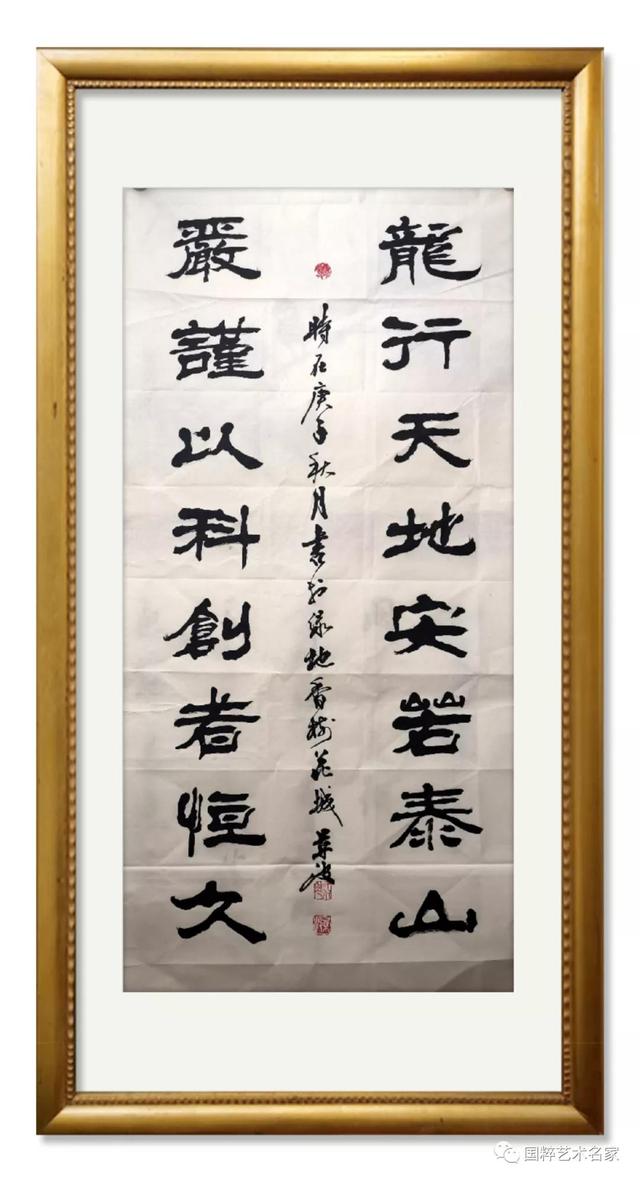 龍行天地安若泰山
時在庚子秋月書於綠地香樹花城
嚴謹以科創者恒久
国粹艺术名家